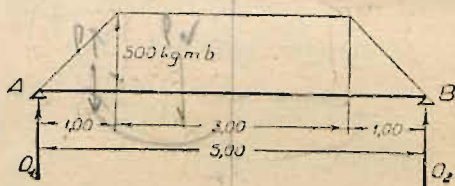 P P
500 kgmb
A B
1,00 3,00 1,00
5,00
O₁ O₂